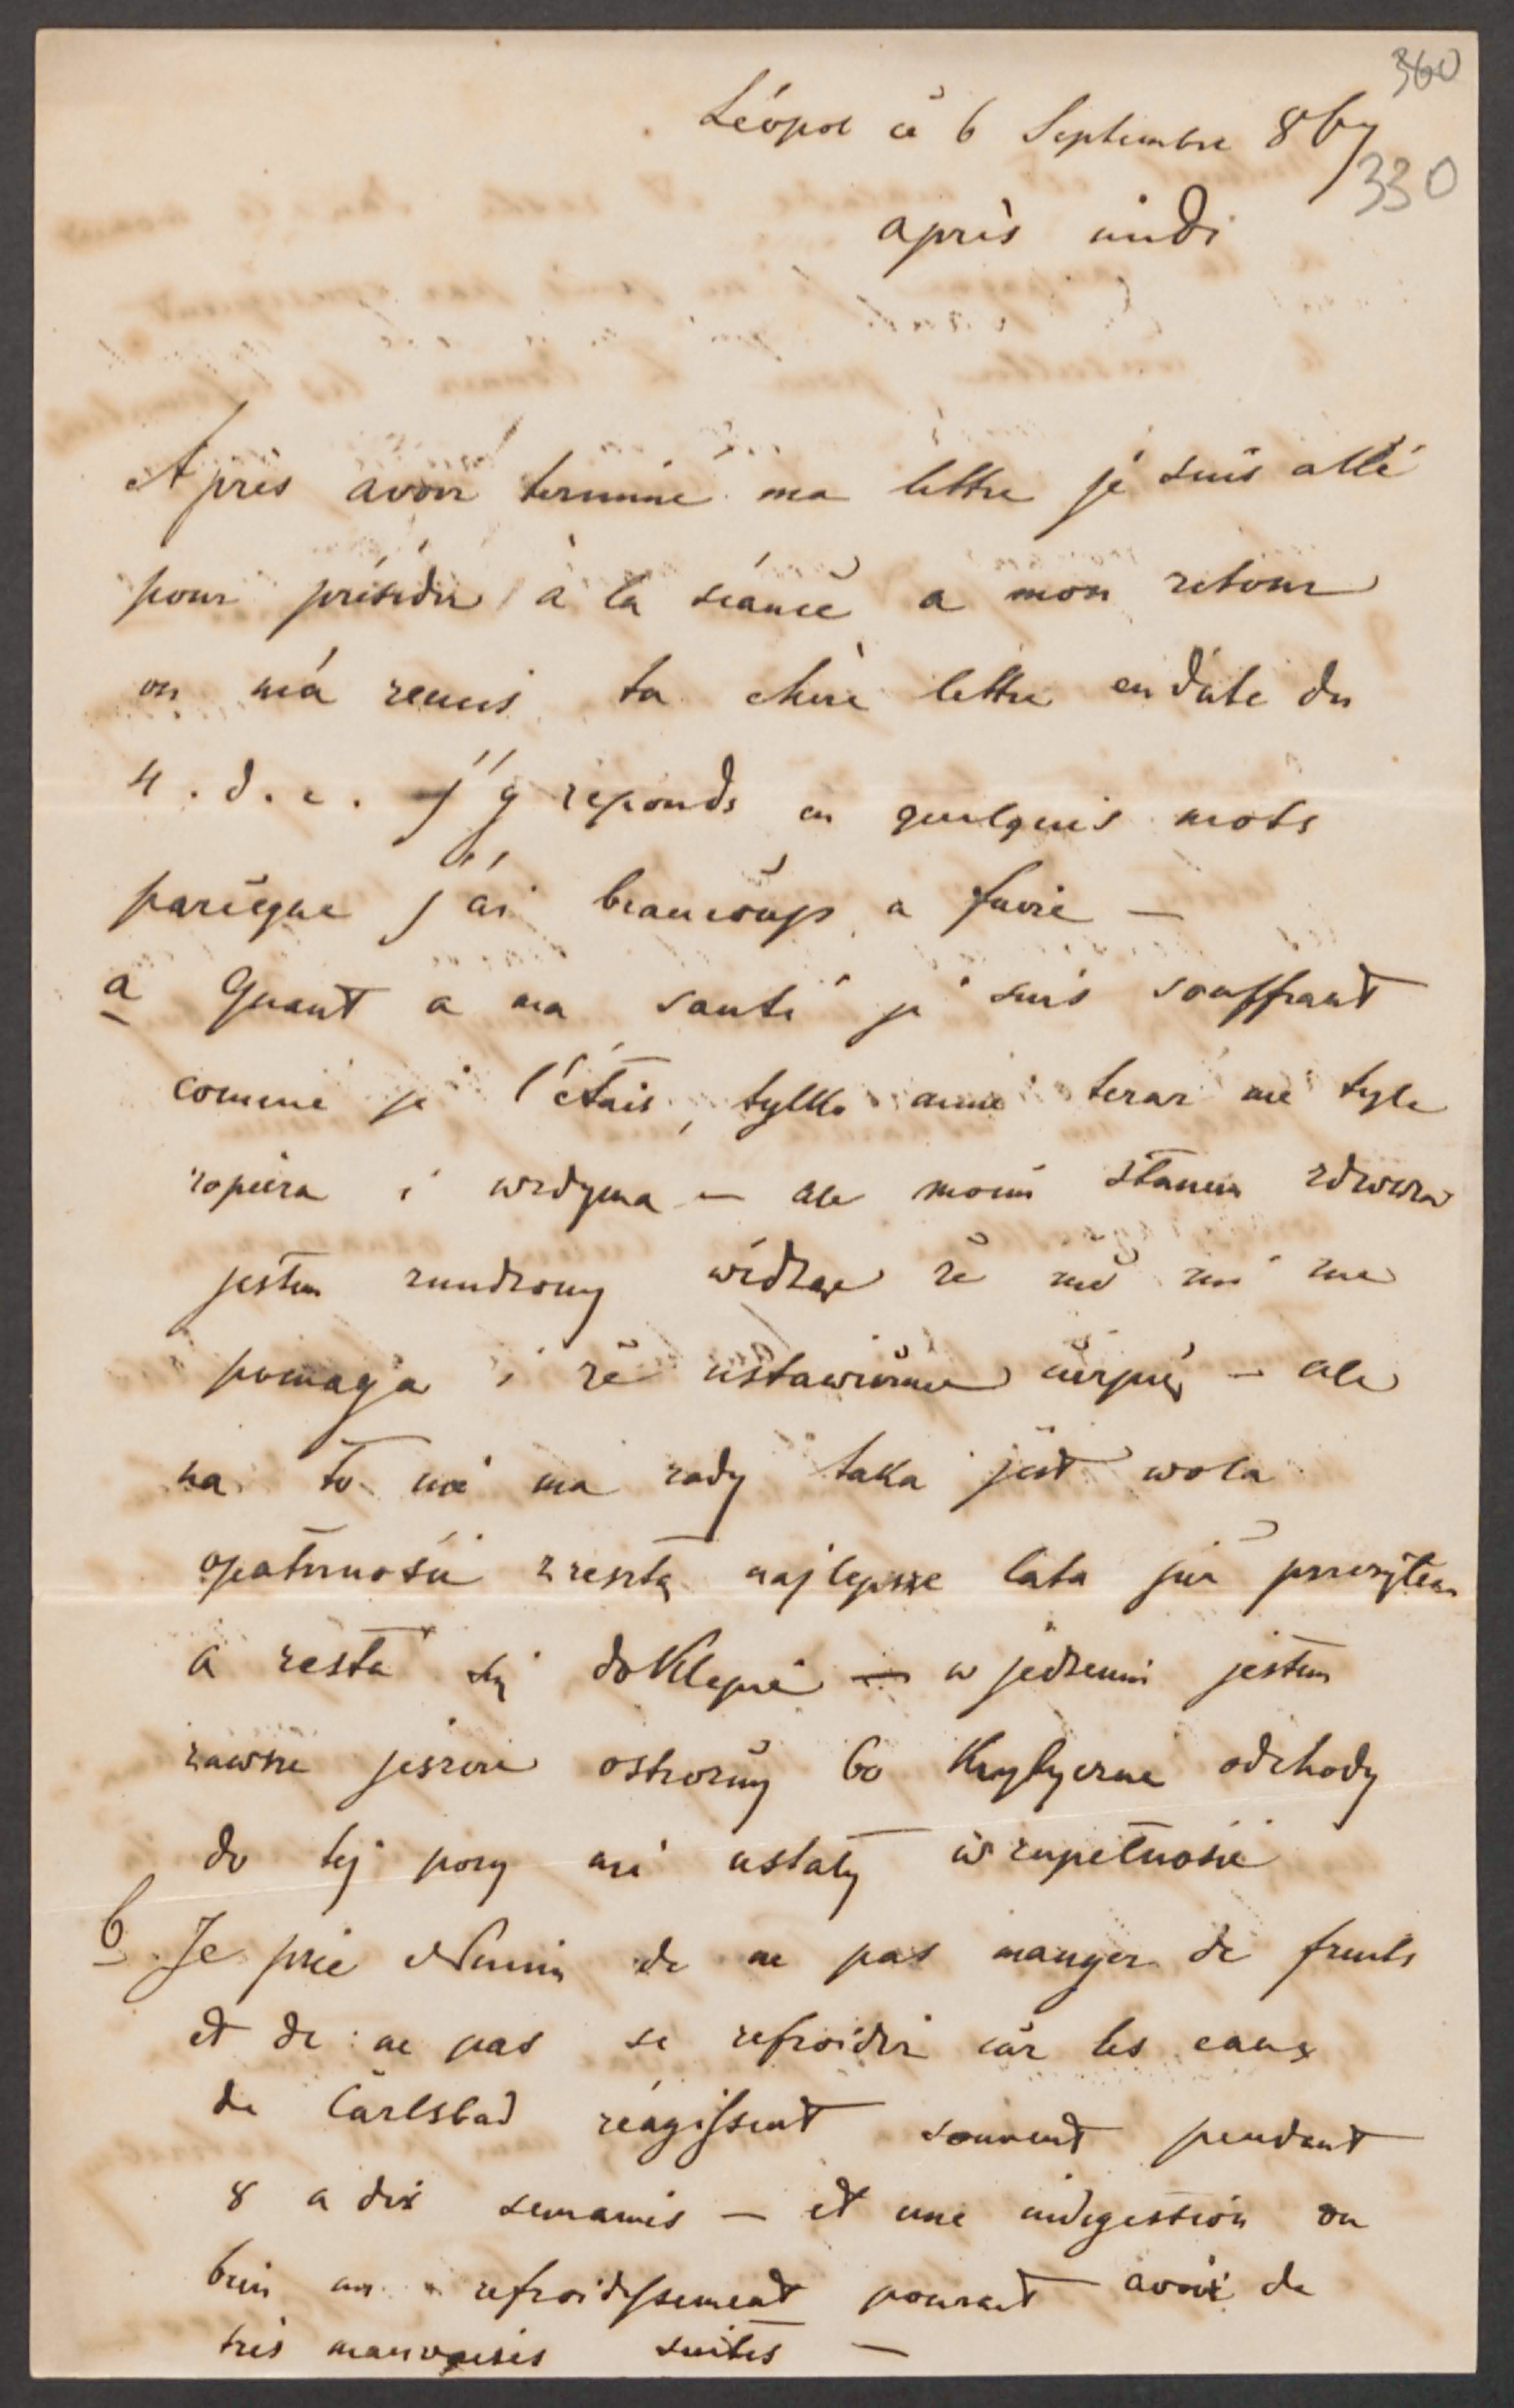 360
Léopol cé 6 Septembre 867
330
après midi
Après avoir terminé ma lettre je suis allé
pour présider à la séance a mon retour
on m'a remis ta chère lettre en date du
4. d. c. J'y reponds en quelques mots
parceque j'ai beaucoup a faire —
a Quant a ma santé je suis souffrant
comme je l'étais, tylko mnie teraz nie tyle
rozpiera i wzdyma — ale moim stanem zdrowia
jestem znudzony widząc że mi nic nie
pomaga i że ustawicznie cierpię — ale
na to nie ma rady taka jest wola
opatrzności zresztą najlepsze lata już przeżyłem
a reszta się doklepie — w jedzeniu jestem
zawsze jeszcze ostrożny bo krytyczne odchody
do tej pory nie ustały w zupełności
b Je prie Nunin de ne pas manger de fruits
et de ne pas se refroidir car les eaux
de Carlsbad réagissent souvent pendant
8 a dix semaines — et une indigestion ou
bien un refroidissement pourait avoir de
tres mauvaises suites —